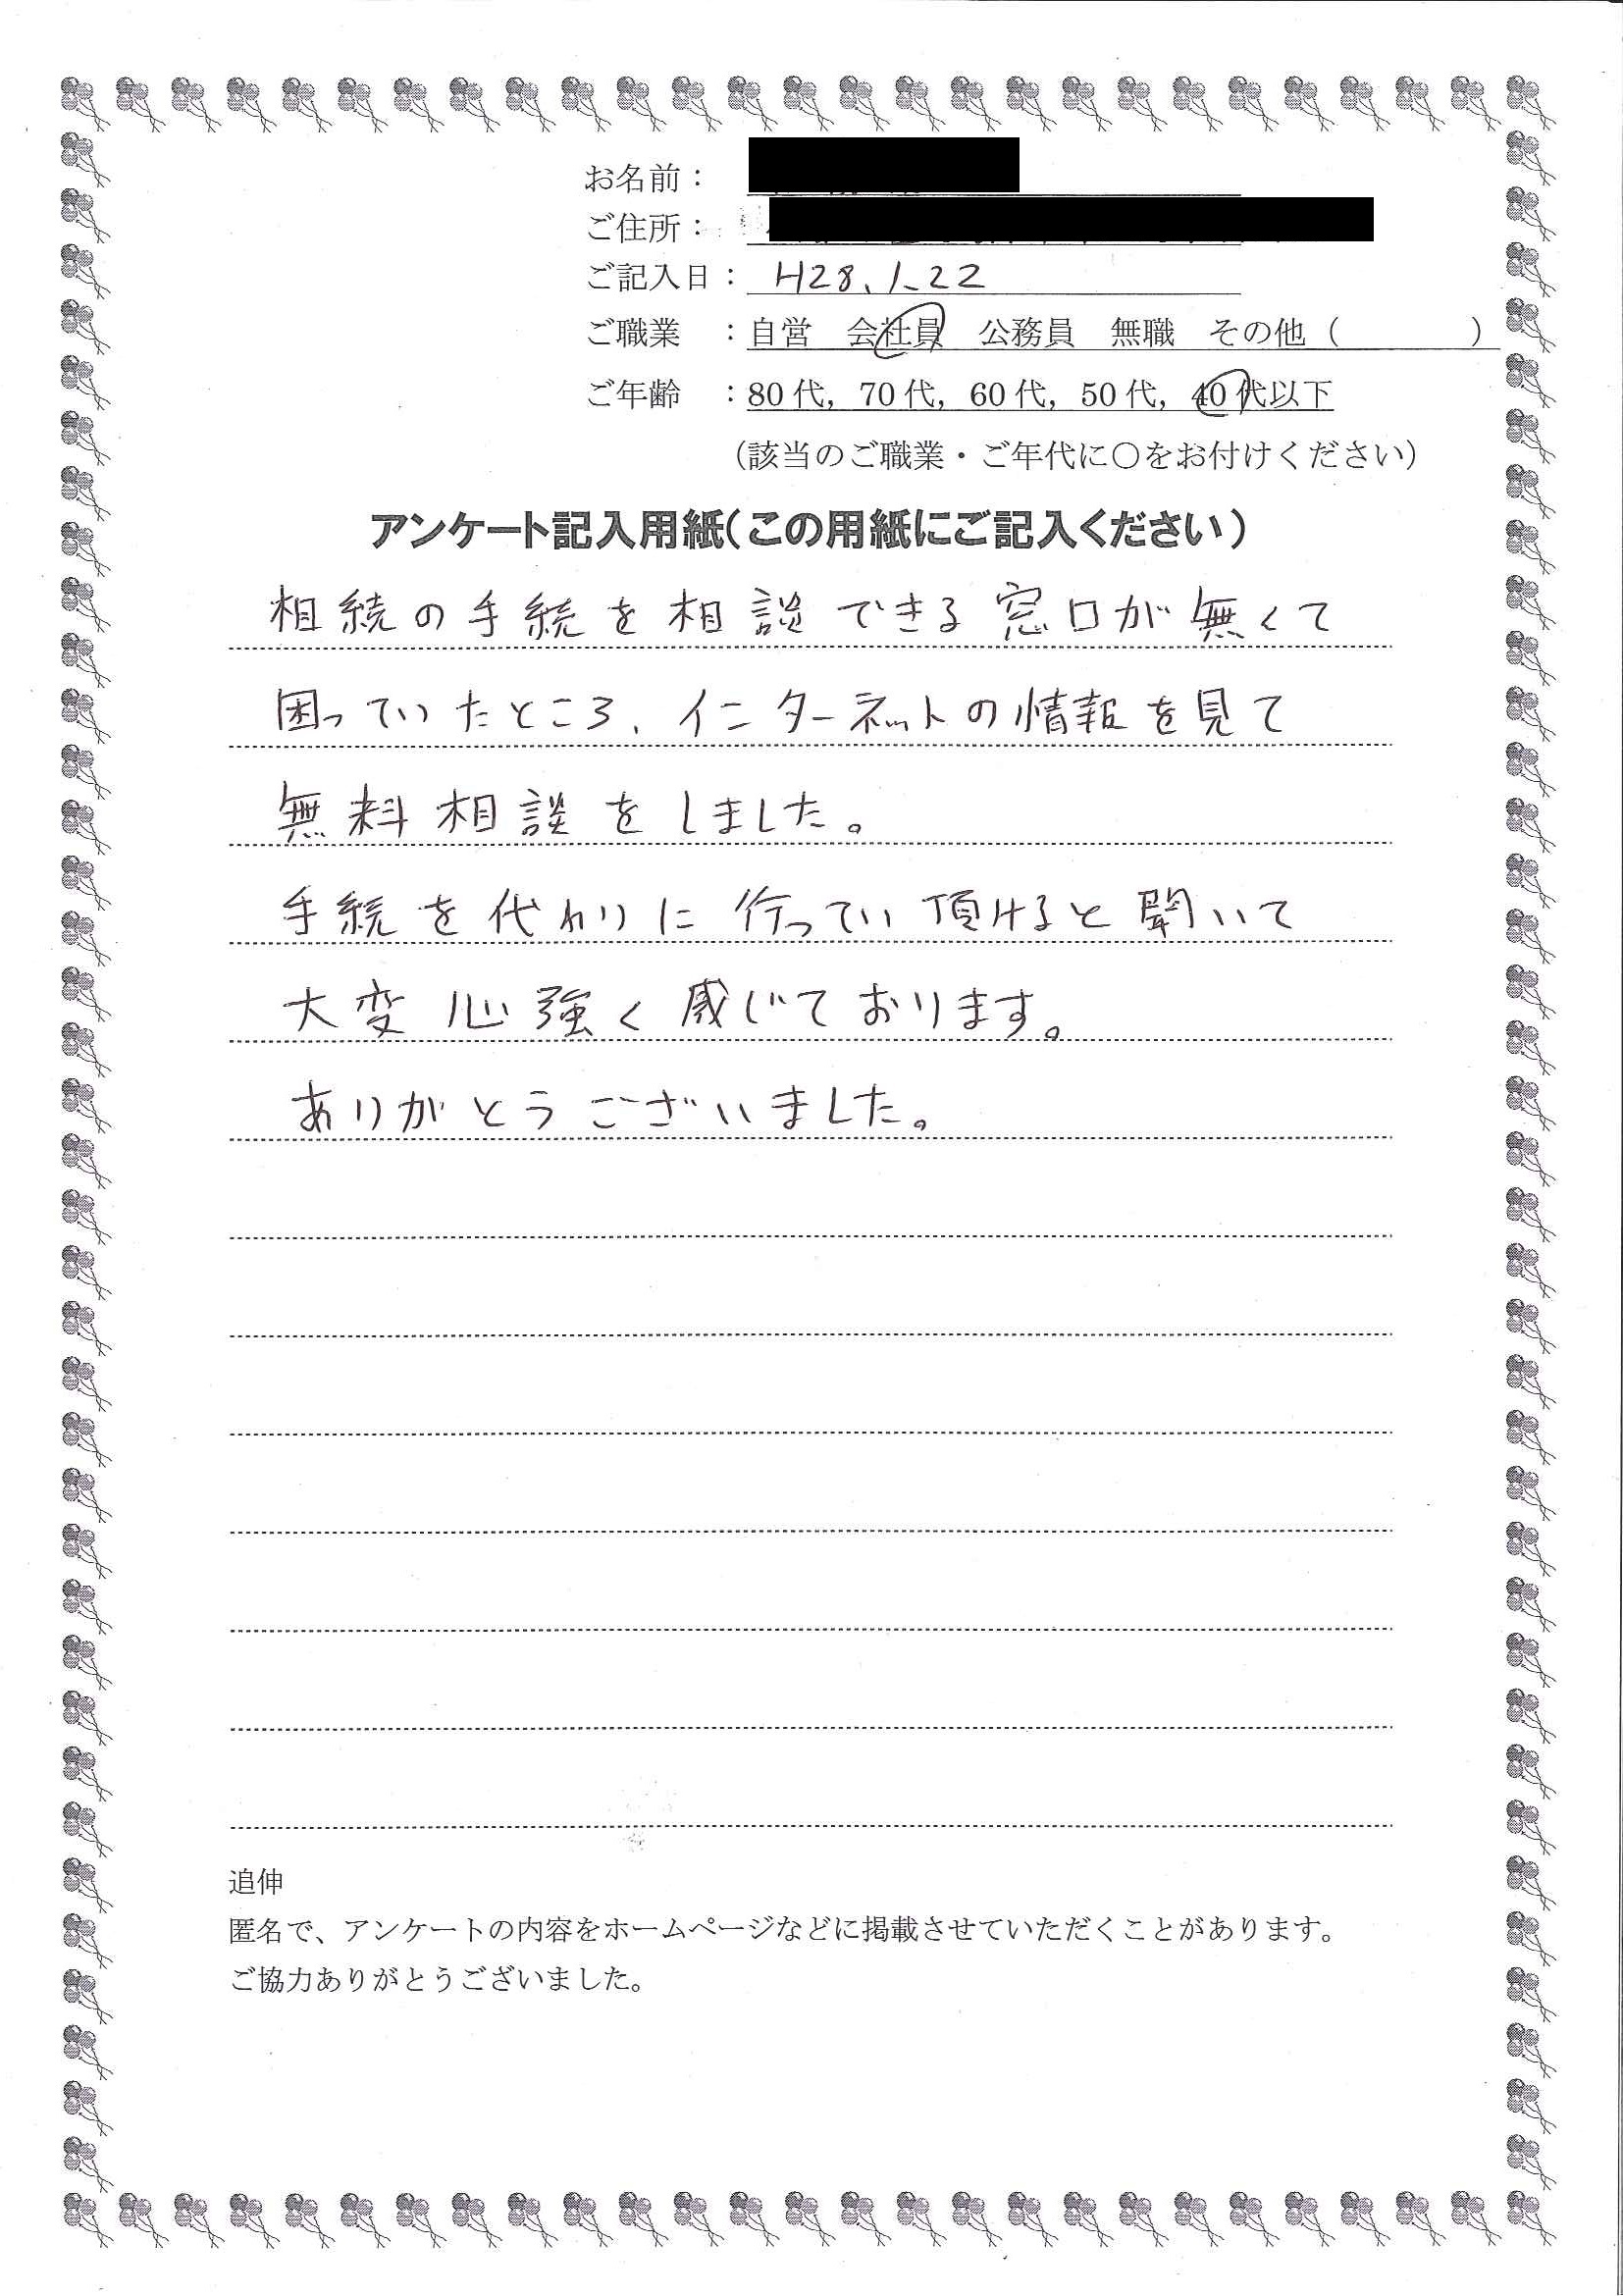 お名前：
ご住所：
ご記入日： H28.1.22
ご職業　：自営　会社員　公務員　無職　その他（　　　　）
ご年齢　：80代，70代，60代，50代，40代以下
（該当のご職業・ご年代に〇をお付けください）
アンケート記入用紙（この用紙にご記入ください）
相続の手続を相談できる窓口が無くて
困っていたところ、インターネットの情報を見て
無料相談をしました。
手続を代わりに行ってい頂けると聞いて
大変心強く感じております。
ありがとうございました。
追伸
匿名で、アンケートの内容をホームページなどに掲載させていただくことがあります。
ご協力ありがとうございました。